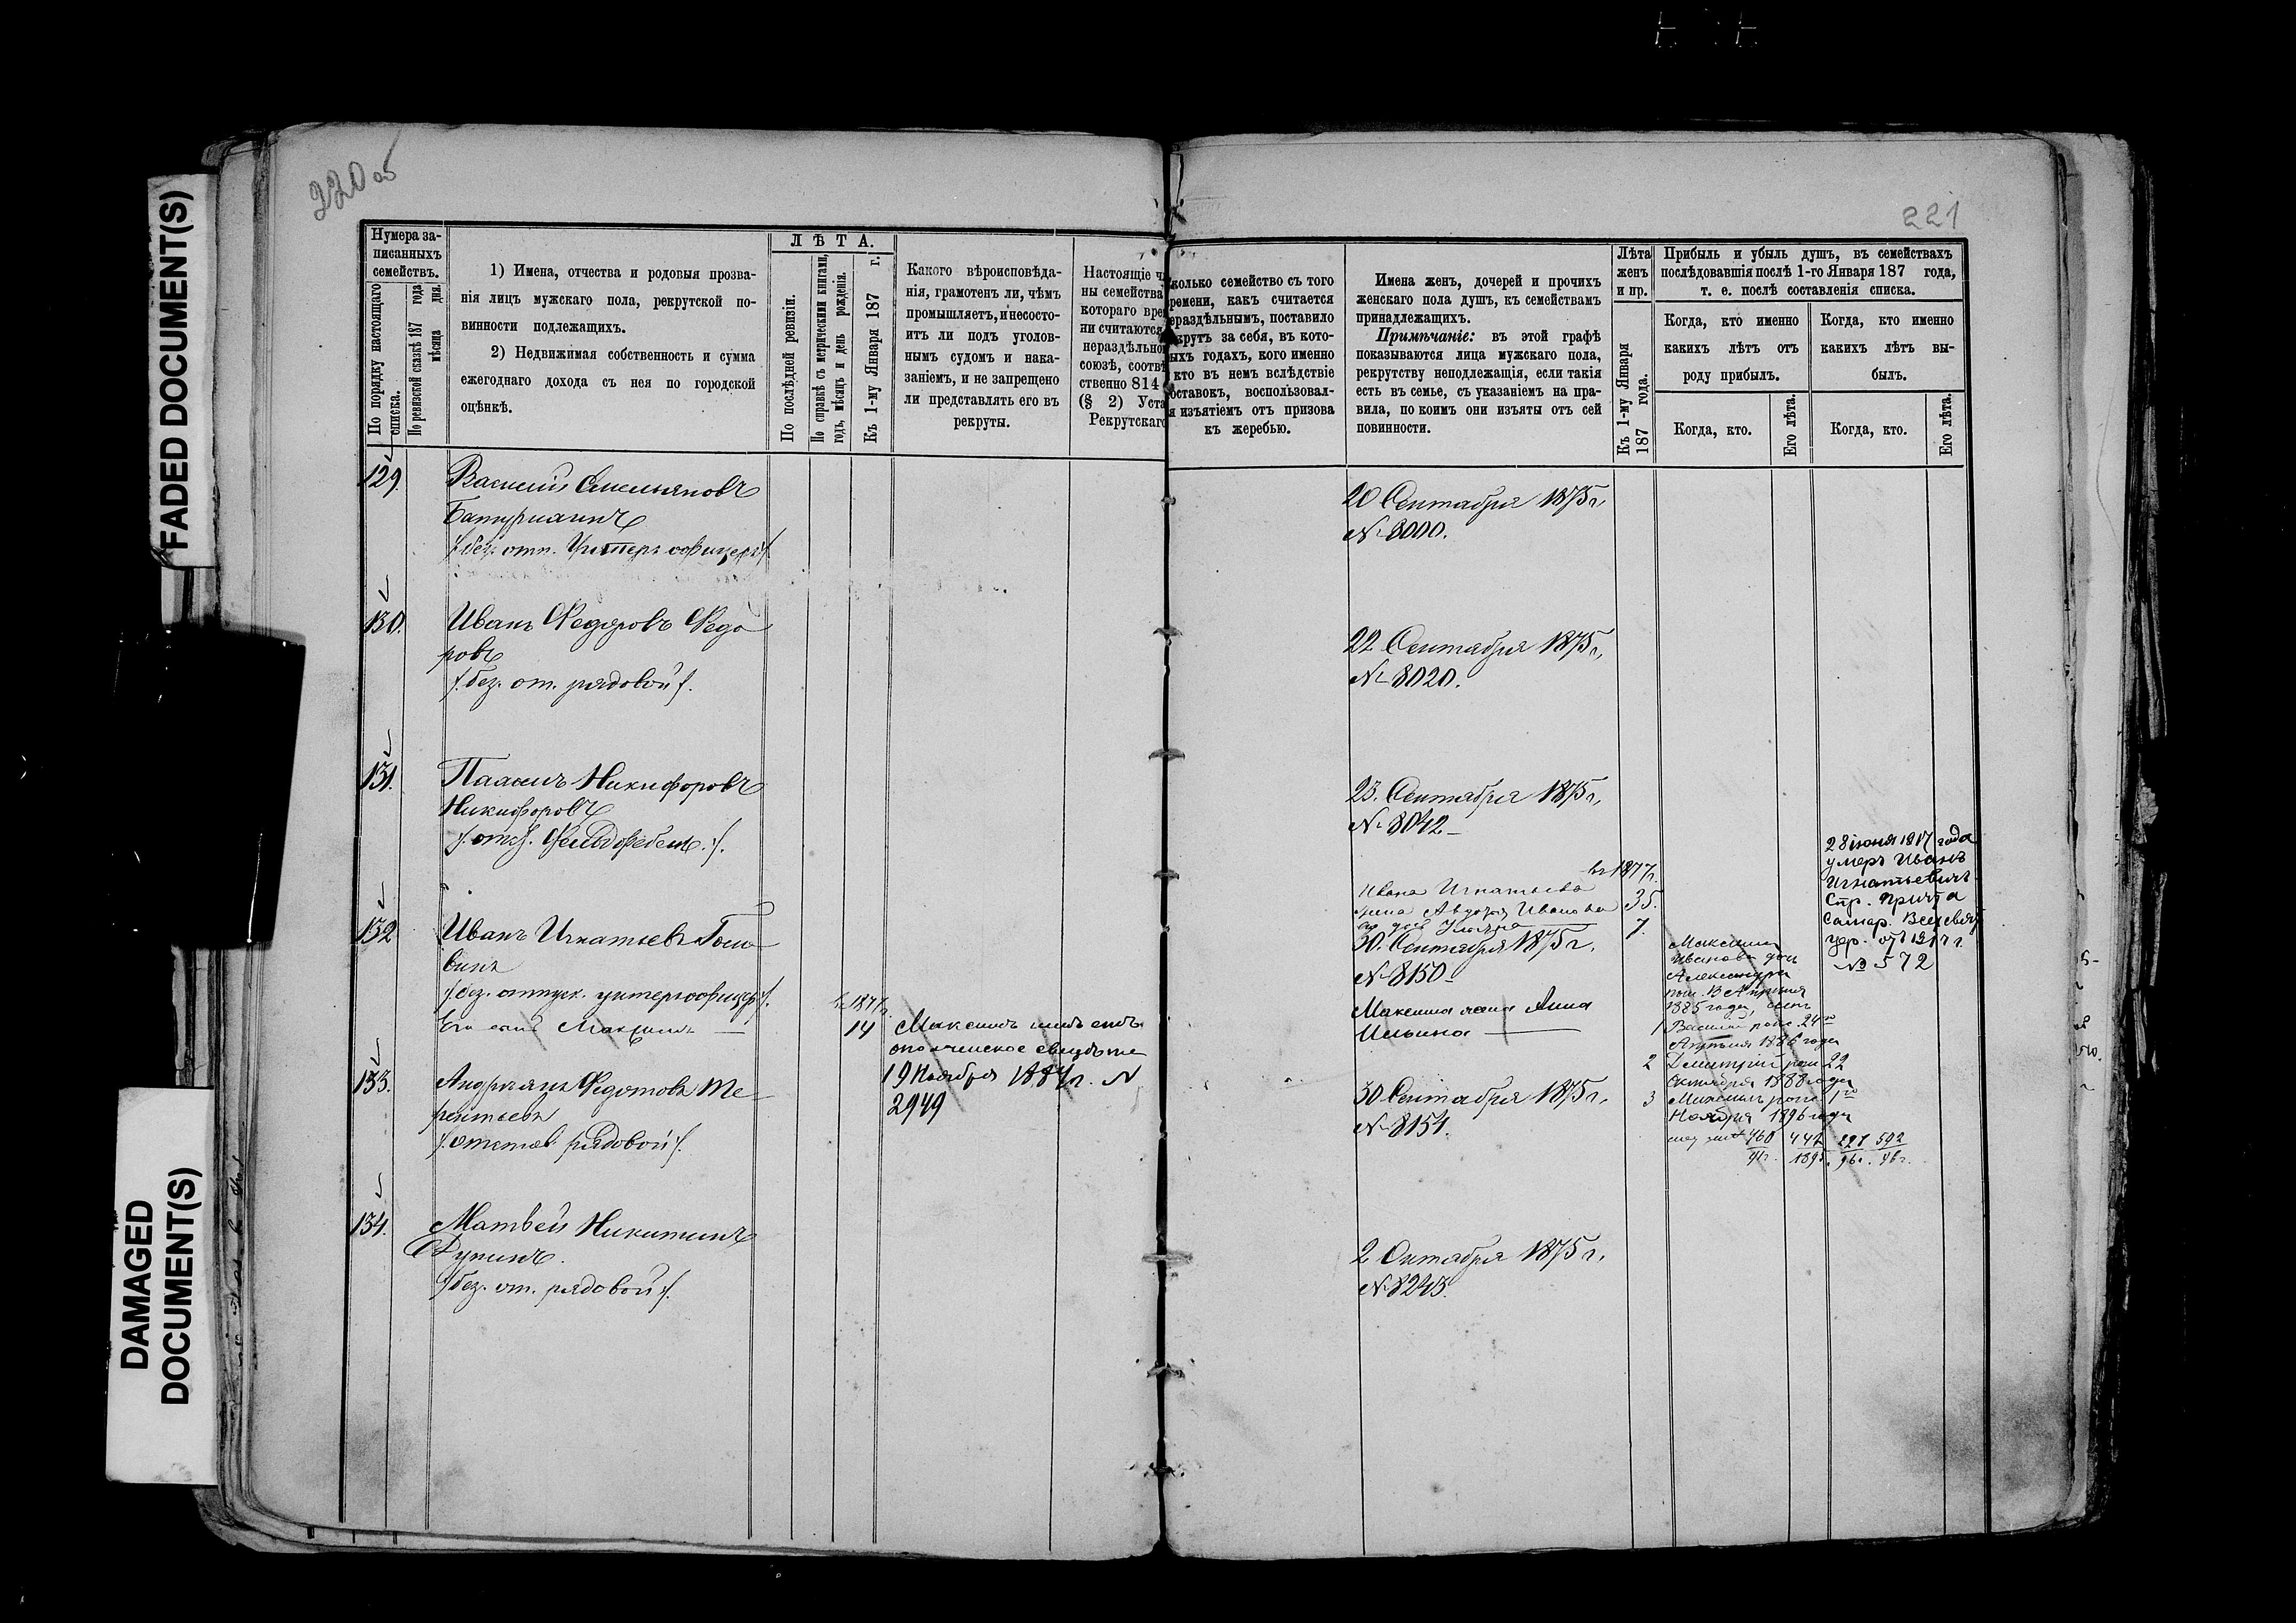 FADED DOCUMENT(S)
DAMAGED
DOCUMENT(S)
220 об
Нумера за-
писанныхъ
семействъ.
По порядку настоящаго
списка.
По ревизской сказкѣ 187 года
мѣсяца дня.
1) Имена, отчества и родовыя прозва-
нія лицъ мужскаго пола, рекрутской по-
винности подлежащихъ.
2) Недвижимая собственность и сумма
ежегоднаго дохода съ нея по городской
оцѣнкѣ.
ЛѢТА.
По послѣдней ревизіи.
По справкѣ съ метрическими книгами,
годъ, мѣсяцъ и день рожденія.
Къ 1-му Января 187 г.
Какого вѣроисповѣда-
нія, грамотенъ ли, чѣмъ
промышляетъ, и не состо-
итъ ли подъ уголов-
нымъ судомъ и нака-
заніемъ, и не запрещено
ли представлять его въ
рекруты.
Настоящіе ч
ны семейства
котораго вре
ни считаются
нераздѣльно
союзѣ, соотвѣ
ственно 814
(§ 2) Уста
Рекрутскаго
129.
Василий Емельяновъ
/без. отп. Унтеръ офицеръ/
130.
Иванъ Федоровъ Федо
ровъ
/.без. от. рядовой/.
131.
Никифоровъ
Никифоровъ
/.отст. Фельдфебель./.
132
Иванъ Игнатьевъ Голо
винъ
/.без. отпуск. унтеръ офицер/.
Его сынъ Максимъ —
въ 1877 г.
14
Максимъ
ополченское свидѣте
19 Ноября 1884 г. №
2949
133.
Андрианъ Федотовъ Те-
рентьевъ
/.отстав. рядовой/.
134.
Матвей Никитинъ
/без. от. рядовой/.
221
сколько семейство съ того
ремени, какъ считается
ераздѣльнымъ, поставило
екрутъ за себя, въ кото-
ыхъ годахъ, кого именно
кто въ немъ вслѣдствіе
оставокъ, воспользовал-
я изъятіемъ отъ призова
къ жеребью.
Имена женъ, дочерей и прочихъ
женскаго пола душъ, къ семействамъ
принадлежащихъ.
Примѣчаніе: въ этой графѣ
показываются лица мужскаго пола,
рекрутству неподлежащія, если такія
есть въ семьѣ, съ указаніемъ на пра-
вила, по коимъ они изъяты отъ сей
повинности.
Лѣта
женъ
и пр.
Къ 1-му Января
187 года.
Прибыль и убыль душъ, въ семействахъ
послѣдовавшія послѣ 1-го Января 187 года,
т. е. послѣ составленія списка.
Когда, кто именно
какихъ лѣтъ отъ
роду прибылъ.
Когда, кто.
Его лѣта.
Когда, кто именно
какихъ лѣтъ вы-
былъ.
Когда, кто.
Его лѣта.
20 Сентября 1875 г,
№ 8000.
22 Сентября 1875 г,
№ 8020.
23. Сентября 1875 г,
№ 8042 —
въ 1877 г.
Ивана Игнатьева
жена Авдотья Иванова 35.
7.
30. Сентября 1875 г.
№ 8150
Максима жена Анна
Ильина —
30 Сентября 1875 г.
№ 8151.
2 Октября 1875 г.
№ 8243.
Максима
Иванова доч
Александра
1885 года, сынъ
1 Василий рож. 24го
Апрѣля 1886 года
2 Дмитрий рож 22
Октября 1888 года
3 Михаилъ рож. 1го
Ноября 1896 года
28 іюня 1917 года
умеръ Иванъ
Игнатьевичъ
Спр. причта
Самар. Всесвят
цер. отъ 1917 г.
№ 572